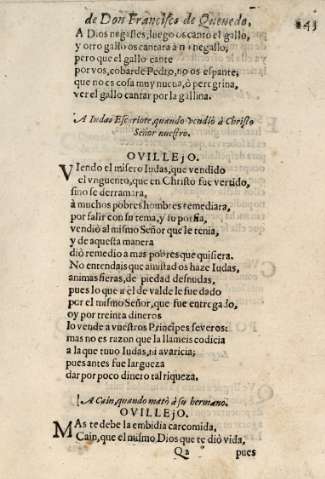 de Don Francisco de Quevedo. 243
A Dios negastes, luego os cantò el gallo,
y otro gallo os cantàra à no negallo,
pero que el gallo cante
por vos, cobarde Pedro, no os espante,
que no es cosa muy nueva, ò peregrina,
ver el gallo cantar por la gallina.
A Iudas Escariote, quando vendiò à Christo
Señor nuestro.
OVILLEJO.
VIendo el misero Iudas, que vendido
el vnguento, que en Christo fue vertido,
sino se derramàra,
à muchos pobres hombres remediara,
por salir con su tema, y su porfia,
vendiò al mismo Señor que le tenia,
y de aquesta manera
diò remedio a mas pobres que quisiera.
No entendais que amistad os haze Iudas,
animas fieras, de piedad desnudas,
pues lo que a èl de valde le fue dado
por el mismo Señor, que fue entregado,
oy por treinta dineros
lo vende a vuestros Principes severos:
mas no es razon que la llameis codicia
a la que tuuo Iudas, ni avaricia;
pues antes fue largueza
dar por poco dinero tal riqueza.
A Cain, quando matò à su hermano.
OVILLEJO.
MAs te debe la embidia carcomida,
Cain, que el mismo Dios que te diò vida,
Qq pues